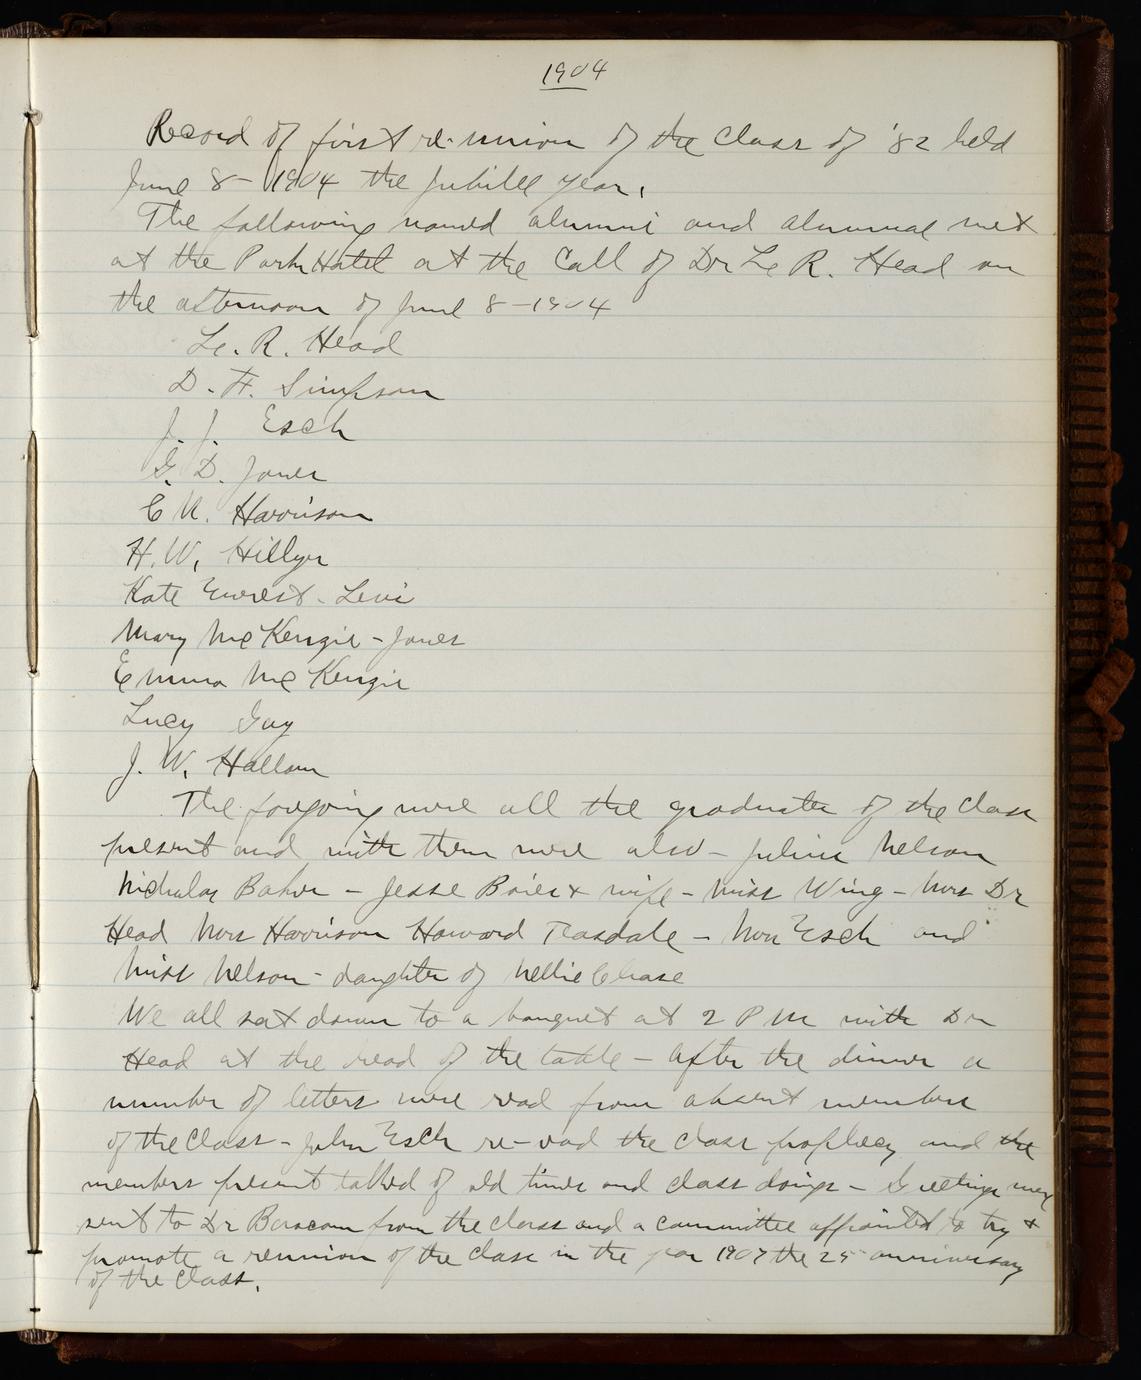 1904
Record of first re-union of the Class of '82 held
June 8 - 1904 the Jubilee year.
The following named alumni and alumnae met
at the Park Hotel at the Call of Dr Le R. Head on
the afternoon of June 8 - 1904
Le. R. Head
D. F. Simpson
J. J. Esch
G. D. Jones
C N. Harrison
H. W. Hillyer
Kate Everest - Levi
Mary McKenzie - Jones
Emma McKenzie
Lucy Gay
J. W. Hallam
The forgoing were all the graduates of the Class
present and with them were also - Julius Nelson
Nicholas Baker - Jesse Boies & wife - Miss Wing - Mrs Dr
Head Mrs Harrison Howard Teasdale - Mrs Esch and
Miss Nelson - daughter of Nellie Chase
We all sat down to a banquet at 2 P M with Dr
Head at the head of the table - After the dinner a
number of letters were read from absent members
of the Class - John Esch re-read the class prophecy and the
members present talked of old times and class doings - Greetings were
sent to Dr Bascom from the class and a committee appointed to try &
promote a reunion of the class in the year 1907 the 25 anniversary
of the Class.